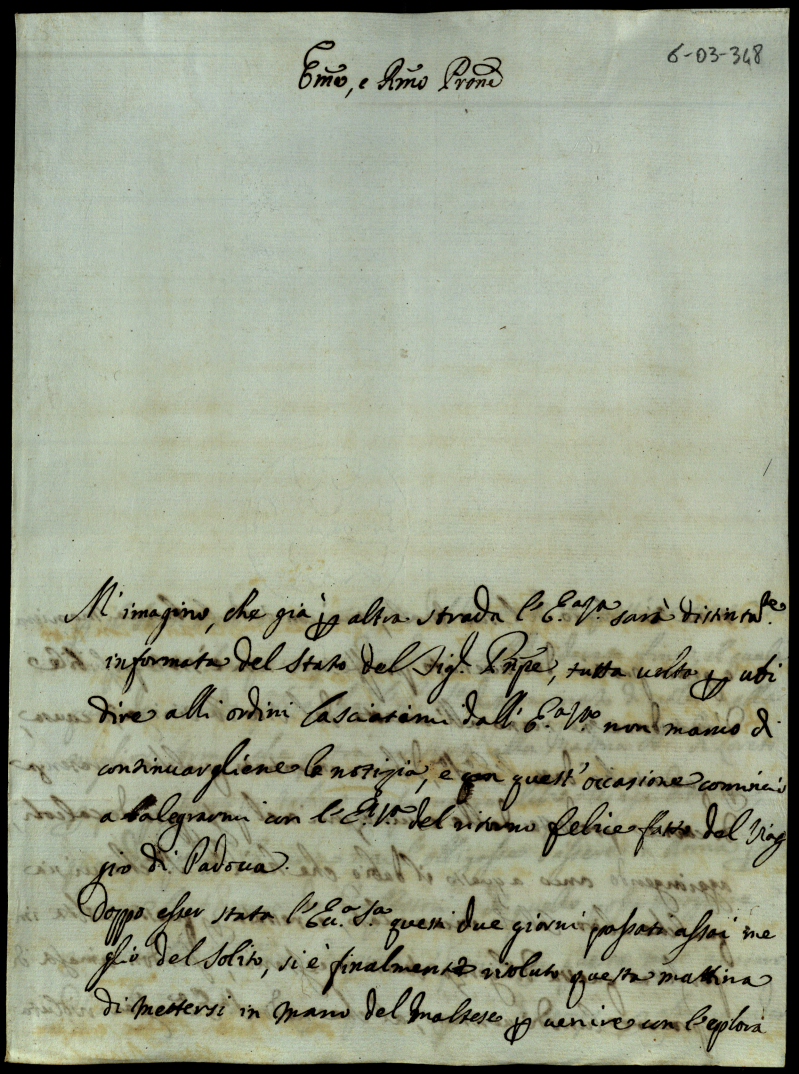 6-03-348
Emo, e Rmo Prone
M'imagino, che già p altra strada l'E.a V.a sarà distintate.
informata del stato del Sig.r Prnpe, tutta volta p ubi
dire alli ordini lasciatimi dall'E.a V.a non manco di
continuargliene le notizia, e con quest'occasione comincio
a ralegrarmi con l'E.V.a del ritorno felice fatto dal Viag
gio di Padova.
Doppo esser stata l'Ecc.a S.a questi due giorni passati assai me
glio del solito, si è finalmente risoluto questa mattina
di mettersi in mano del Maltese p venire con l'esplora